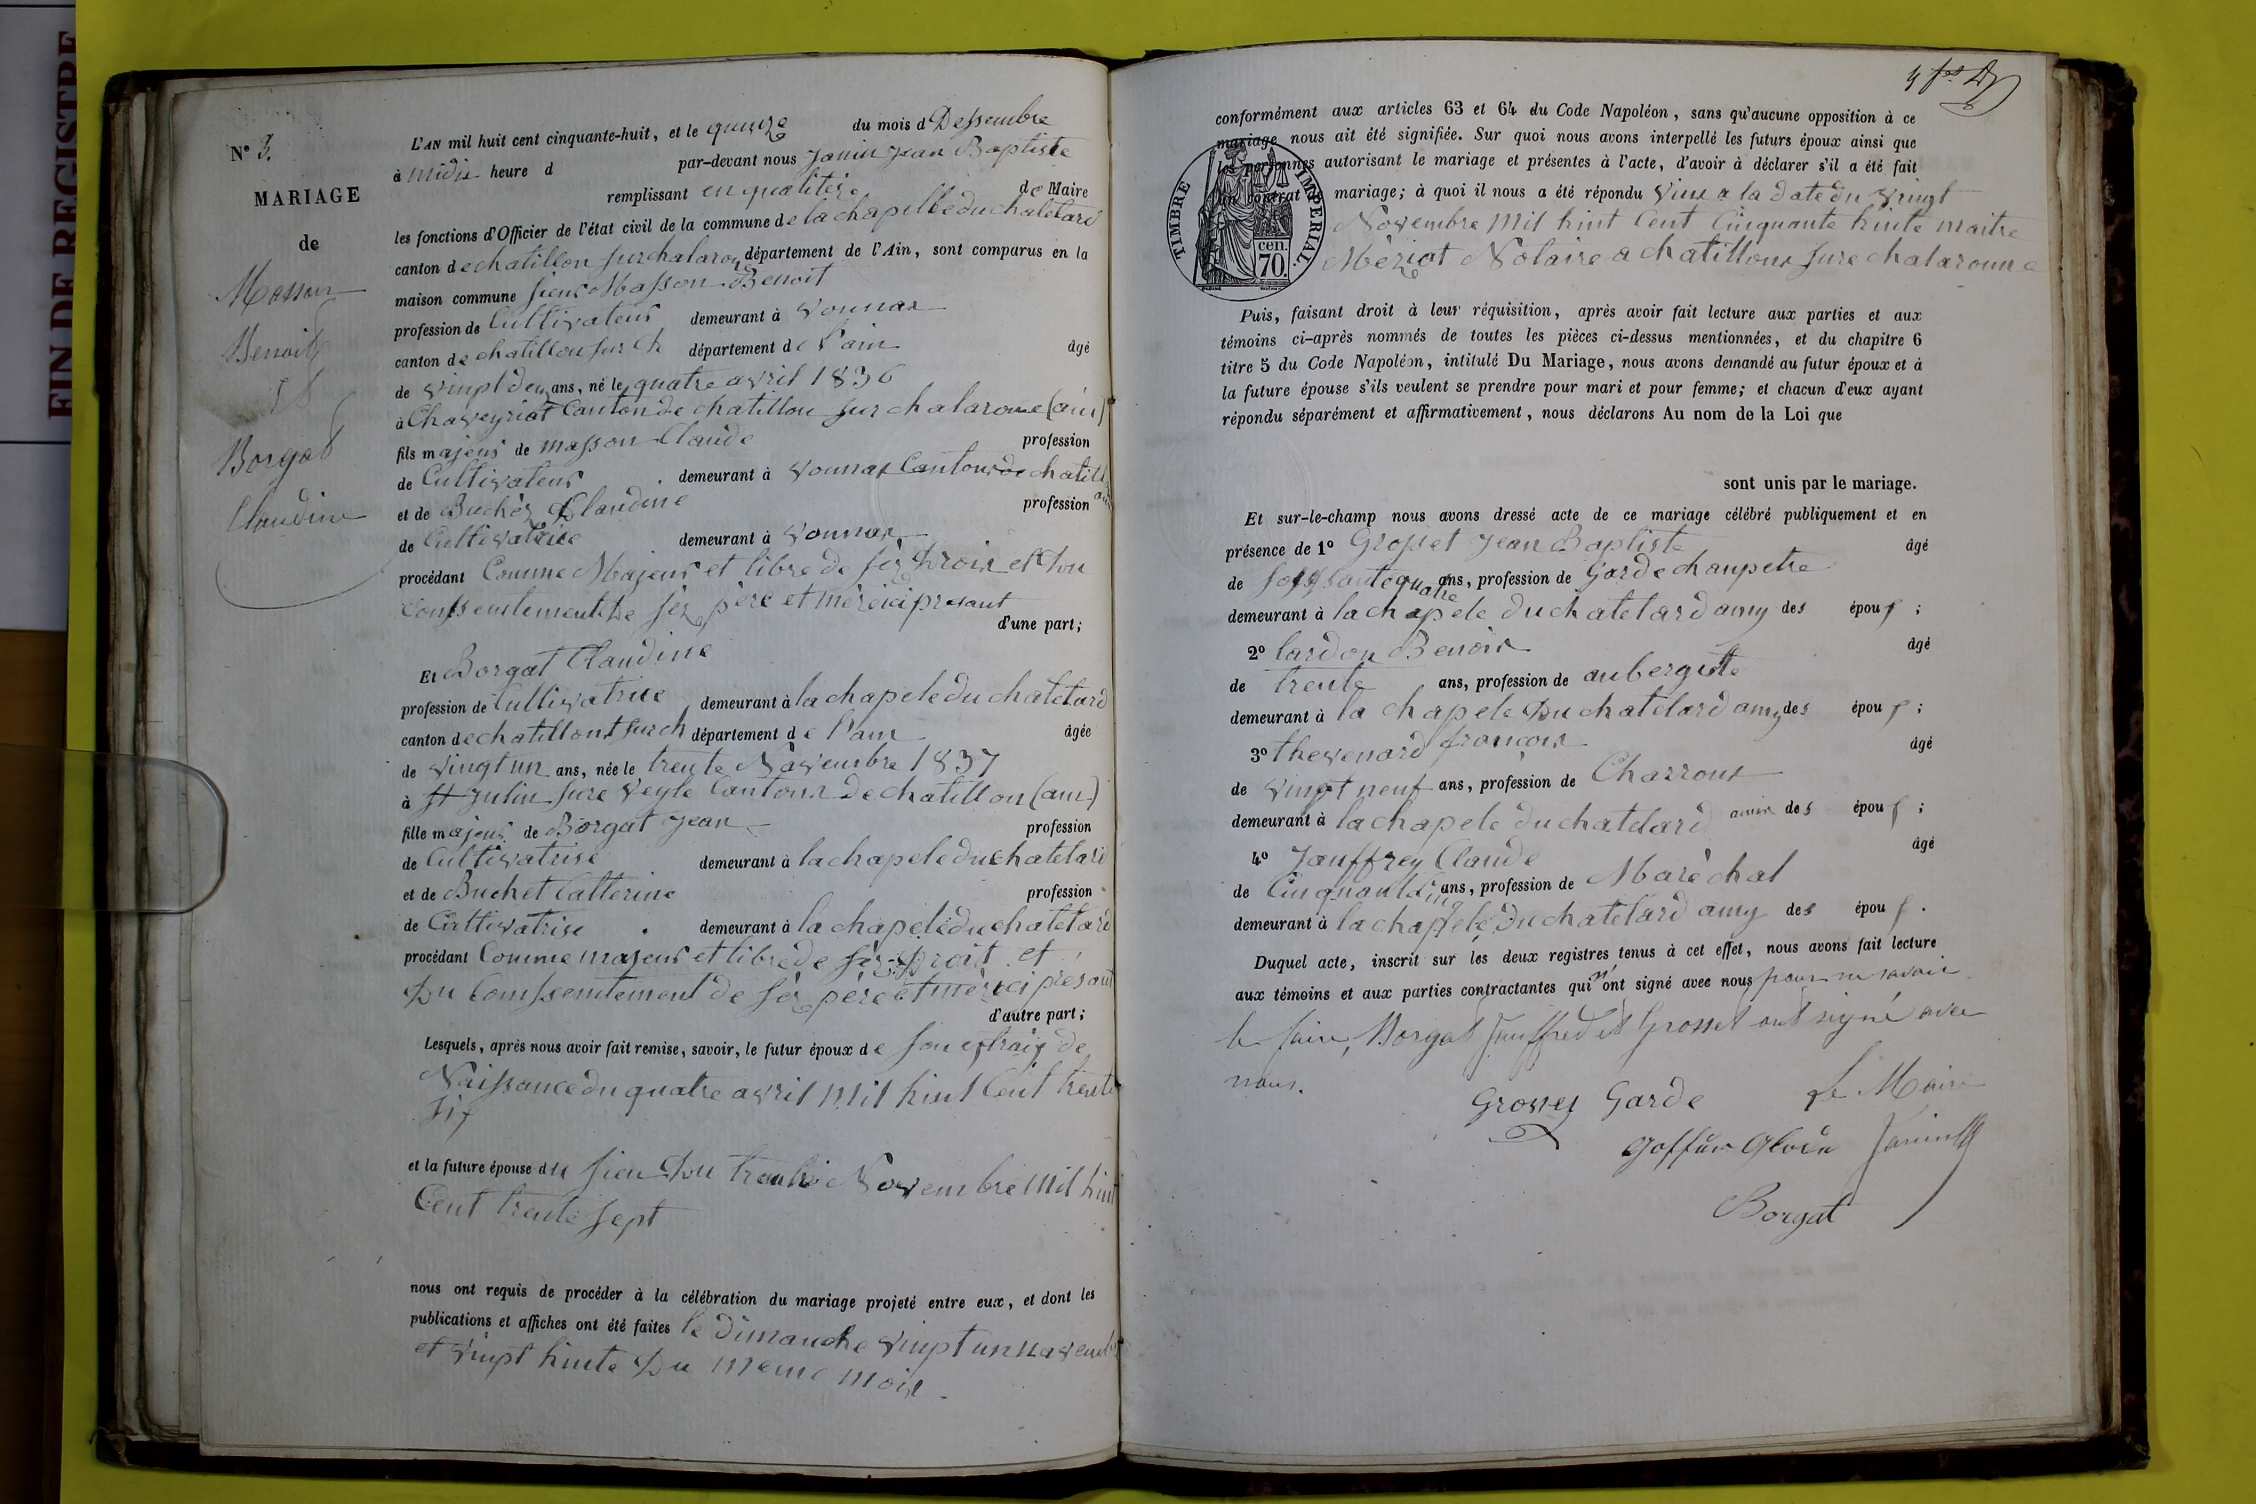 FIN DE REGISTRE
N° 3.
MARIAGE
de
Masson
Benoit
et
Borgat
Claudine
L'AN mil huit cent cinquante-huit, et le quinze du mois d Dessembre
à midii heure d par-devant nous Janin Jean Baptiste
remplissant en qualitére de Maire
les fonctions d'Officier de l'état civil de la commune de la chapelle du chatelard
canton de chatillon sur chalarone département de l'Ain, sont comparus en la
maison commune sieur Masson Benoit
profession de Cultivateur demeurant à vonnax
canton de chatillon sur ch département de l'ain âgé
de vingt deux ans, né le quatre avril 1836
à Chaveyriat Canton de chatillon sur chalarone (ain)
fils majeur de masson Claude profession
de Cultivateur demeurant à vonnax Canton de chatill
ain
et de Buchez Claudine profession
de Cultivatrice demeurant à vonnax
procédant Comme Majeur et libre de sez Droix et Du
Conssentement De sez père et mère ici présant
d'une part;
Et Borgat Claudine
profession de Cultivatrice demeurant à la chapele du chatelard
canton de chatillont sur ch département de l'ain âgée
de vingt un ans, née le trente Novembre 1837
à St Julin sure veyle Canton De chatillon (ain)
fille majeur de Borgat Jean profession
de Cultivatrise demeurant à la chapele du chatelard
et de Buchet Catterine profession
de Cultivatrise demeurant à la chapele du chatelard
procédant Comme majeur et libre de sez Droit et
Du Conssentement de sez père et mère ici présant
d'autre part;
Lesquels, après nous avoir fait remise, savoir, le futur époux de son extraix de
Naissance du quatre avril mil huit Cent trente
six
et la future épouse du sien Du trente Novembre mil huit
Cent trente sept
nous ont requis de procéder à la célébration du mariage projeté entre eux, et dont les
publications et affiches ont été faites le Dimanche vingt un novembre
et vingt huite Du meme moix
conformément aux articles 63 et 64 du Code Napoléon, sans qu'aucune opposition à ce
mariage nous ait été signifiée. Sur quoi nous avons interpellé les futurs époux ainsi que
les personnes autorisant le mariage et présentes à l'acte, d'avoir à déclarer s'il a été fait
un contrat de mariage; à quoi il nous a été répondu vine a la date du vingt
Novembre Mil huit Cent Cinquante huite maitre
Mériat Notaire a chatillon sure chalaronne
TIMBRE IMPÉRIAL.
cen.
70.
Puis, faisant droit à leur réquisition, après avoir fait lecture aux parties et aux
témoins ci-après nommés de toutes les pièces ci-dessus mentionnées, et du chapitre 6
titre 5 du Code Napoléon, intitulé Du Mariage, nous avons demandé au futur époux et à
la future épouse s'ils veulent se prendre pour mari et pour femme; et chacun d'eux ayant
répondu séparément et affirmativement, nous déclarons Au nom de la Loi que
sont unis par le mariage.
Et sur-le-champ nous avons dressé acte de ce mariage célébré publiquement et en
présence de 1° Grosset Jean Baptiste âgé
de soissante quatre ans, profession de Garde chanpetre
demeurant à la chapele du chatelard amy des époux ;
2° lardon Benoix âgé
de trente ans, profession de aubergiste
demeurant à la chapele Du chatelard amy des époux ;
3° thevenard françoix âgé
de vingt neuf ans, profession de Charront
demeurant à la chapele du chatelard amix des époux ;
4° Jauffrey Claude âgé
de Cinquante cinq ans, profession de Maréchal
demeurant à la chapele Du chatelard amy des époux .
Duquel acte, inscrit sur les deux registres tenus à cet effet, nous avons fait lecture
aux témoins et aux parties contractantes qui n'ont signé avec nous pour ne savoir
le faire, Borgat Jauffred et Grosset ont signé avec
nous.
Grosset Garde Le Maire
Janin
Borgat